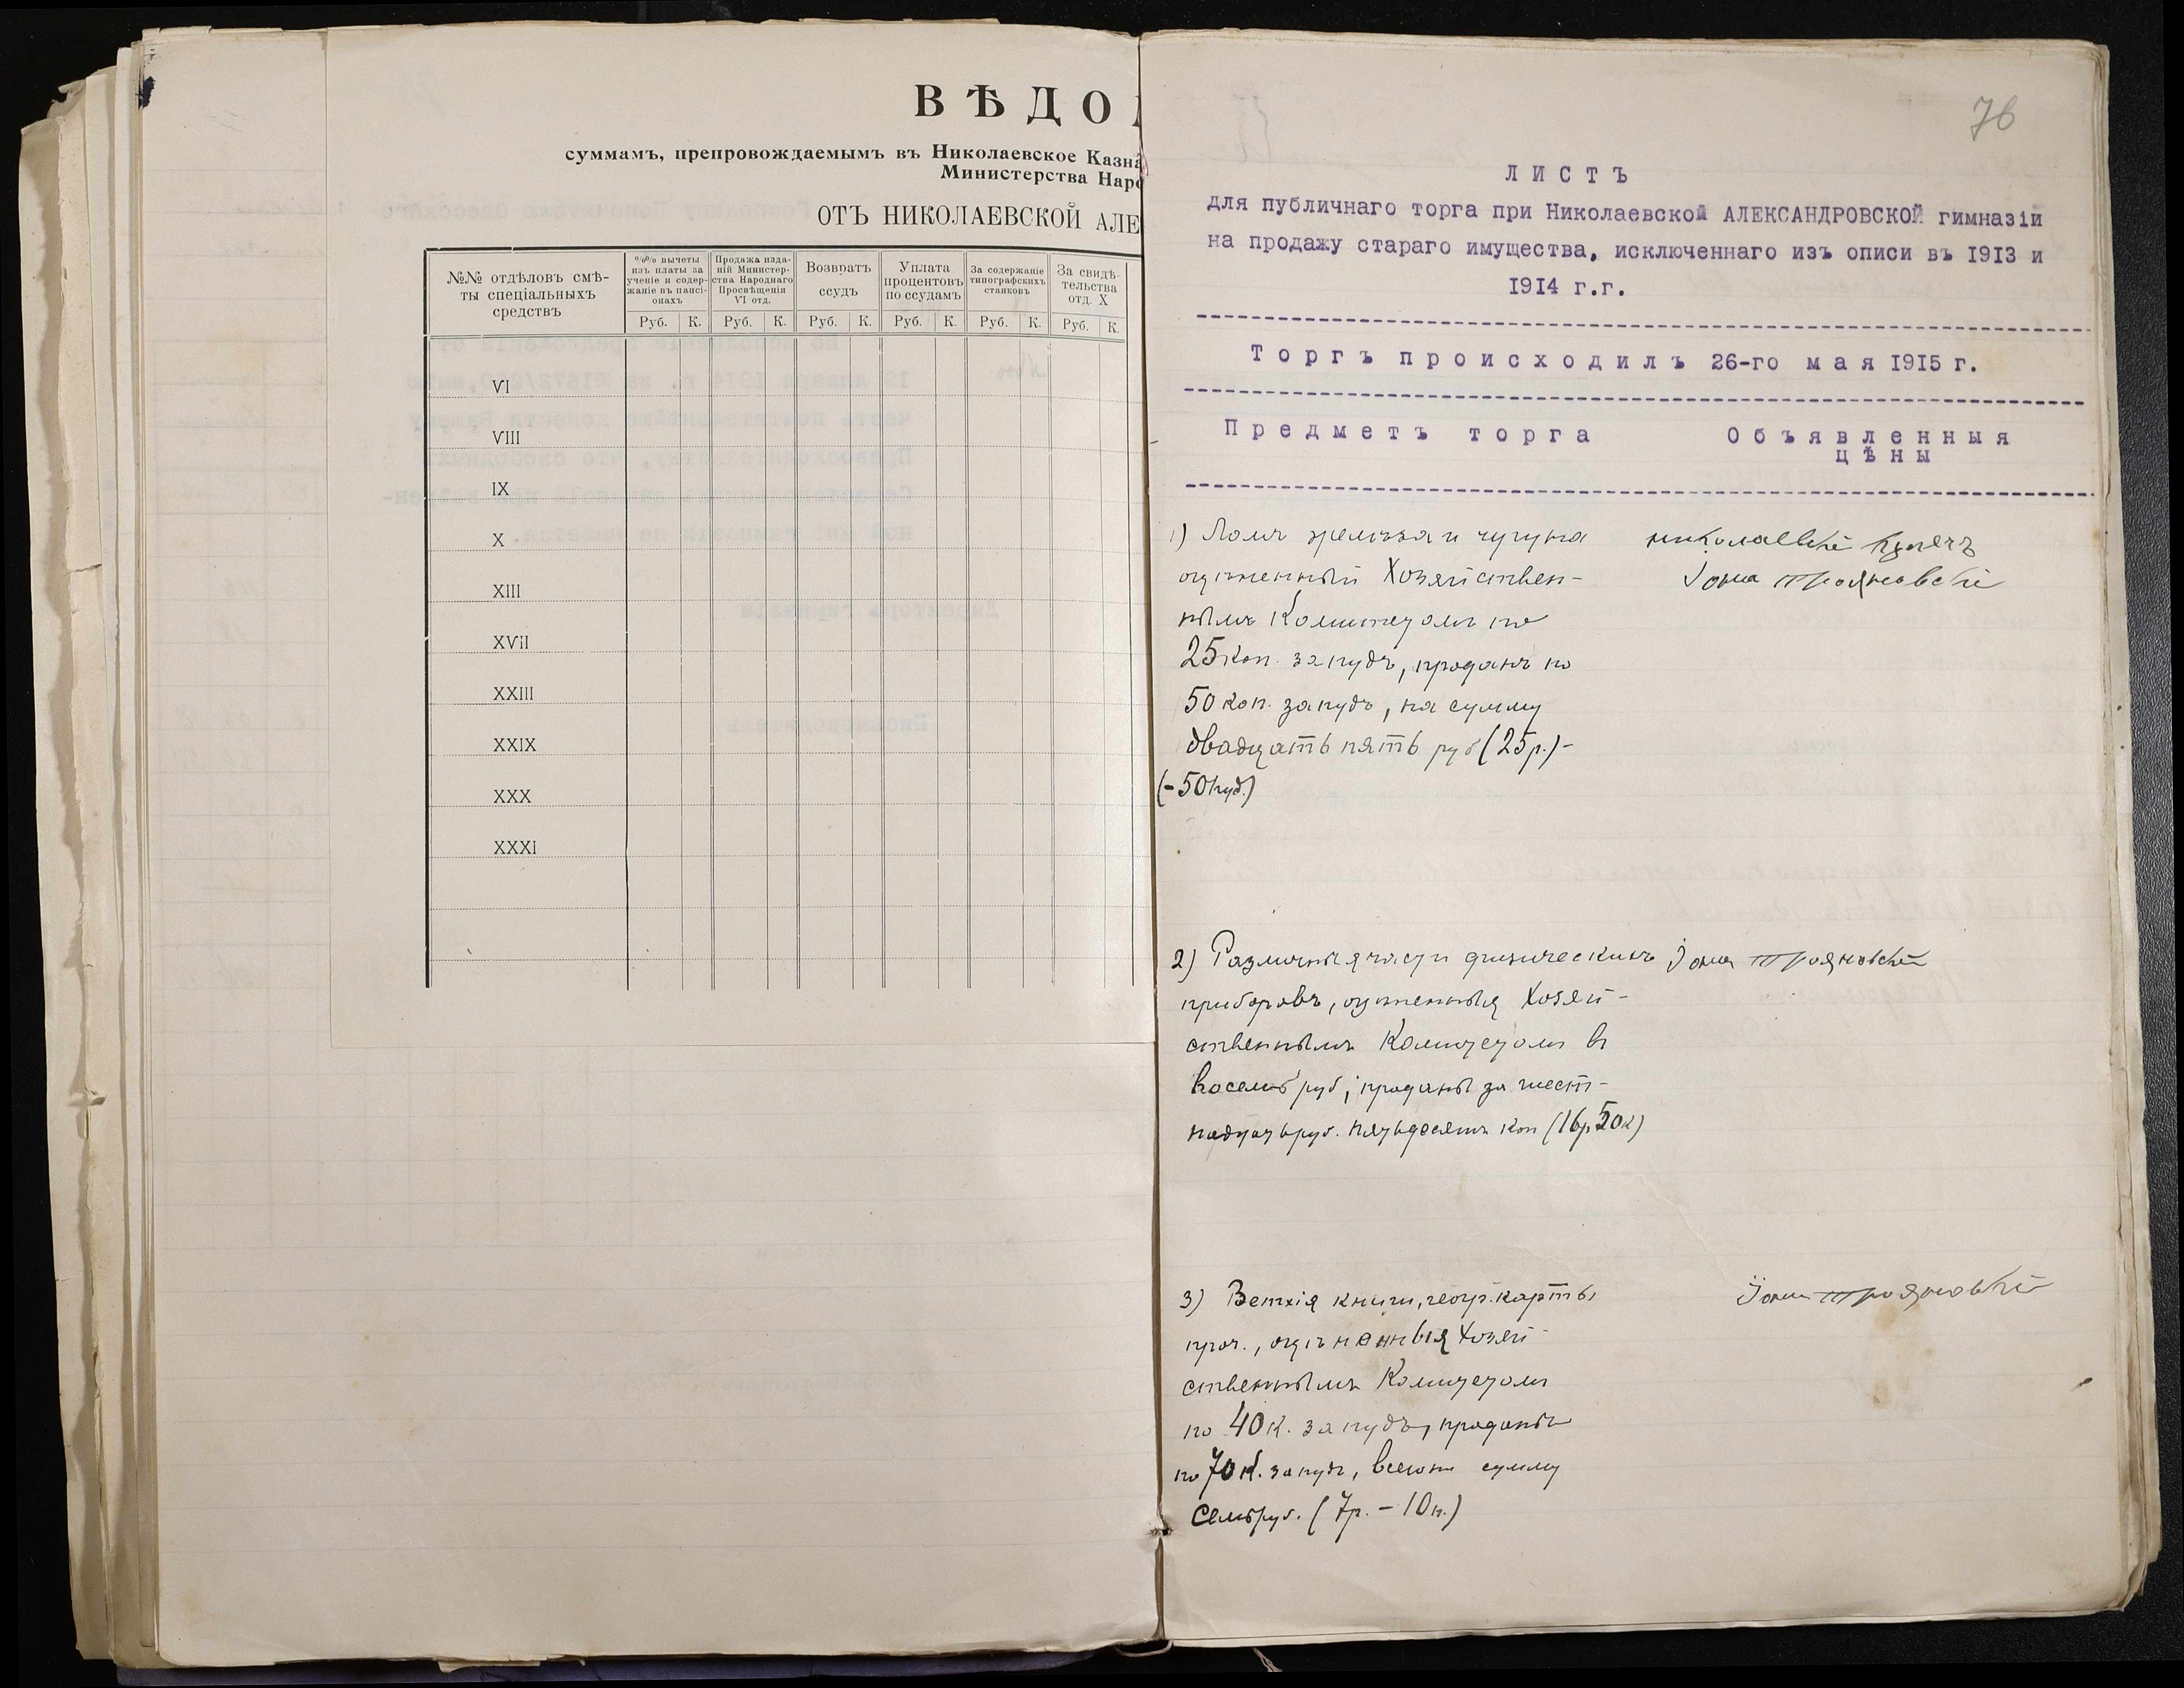 ВѢДО
суммамъ, препровождаемымъ въ Николаевское Казна
Министерства Наро
ОТЪ НИКОЛАЕВСКОЙ АЛЕ
№№ отдѣловъ смѣ-
ты спеціальныхъ
средствъ
%% вычеты
изъ платы за
ученіе и содер-
жаніе въ пансі-
онахъ
Руб. К.
Продажа изда-
ній Министер-
ства Народнаго
Просвѣщенія
VI отд.
Руб. К.
Возвратъ
ссудъ
Руб. К.
Уплата
процентовъ
по ссудамъ
Руб. К.
За содержаніе
типографскихъ
станковъ
Руб. К.
За свидѣ-
тельства
отд. X
Руб. К.
VI
VIII
IX
X
XIII
XVII
XXIII
XXIX
XXX
XXXI
76
ЛИСТЪ
для публичнаго торга при Николаевской АЛЕКСАНДРОВСКОЙ гимназіи
на продажу стараго имущества, исключеннаго изъ описи въ 1913 и
1914 г.г.
Торгъ происходилъ 26-го мая 1915 г.
Предметъ торга
Объявленныя
цѣны
1) Ломъ желѣза и чугуна
оцѣненный Хозяйствен-
нымъ Комитетомъ по
25 коп. за пудъ, проданъ по
50 коп. за пудъ, на сумму
двадцать пять руб (25 р.) -
(- 50 пуд.)
николаевскій купецъ
Іона Трояновскій
2) Различныя части физическихъ
приборовъ, оцѣненныя Хозяй-
ственнымъ Комитетомъ въ
восемь руб, проданы за шест-
надцать руб. пятьдесятъ коп (16 р 50 к)
Іона Трояновскій
3) Ветхія книги, геогр. карты
проч., оцѣненныя Хозяй-
ственнымъ Комитетомъ
по 40 к. за пудъ, проданы
по 70 к. за пудъ, всего на сумму
семь руб. (7 р. - 10 п.)
Іона Трояновскій